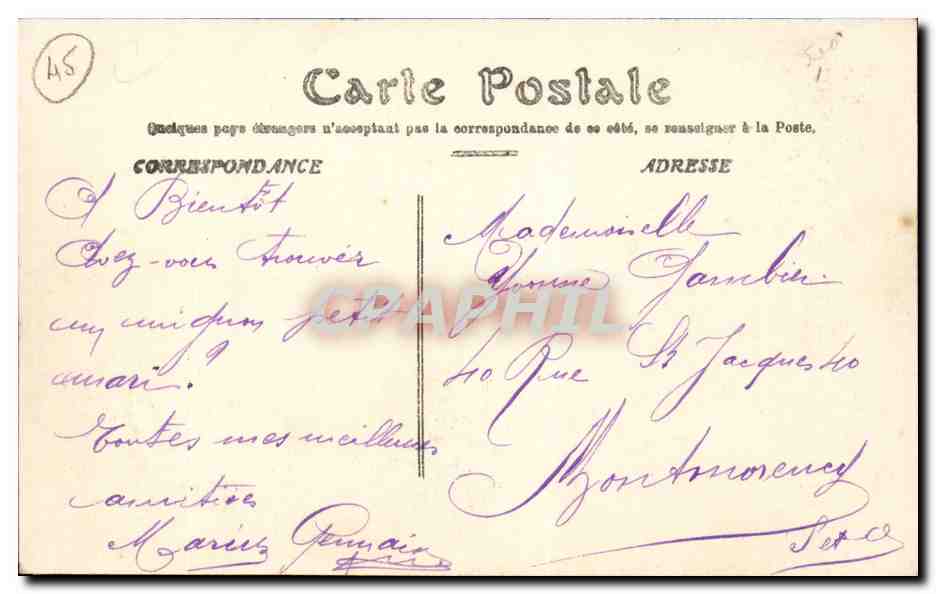 45
Carte Postale
Quelques pays étrangers n'acceptant pas la correspondance de ce côté, se renseigner à la Poste.
CORRESPONDANCE
ADRESSE
A Bientôt
Avez-vous trouvér
un mignon petit
mari?
Toutes mes meilleures
amitiées
Germain
Mademoiselle
Yvonne Gambier
40 Rue St Jacques 40
Montmorency
S et O
CPAPHIL